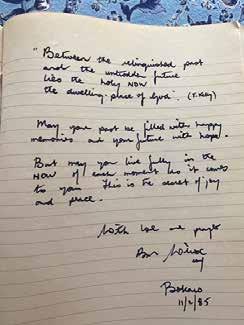 "Between the relinquished past
and the untrodden future
lies the Holy NOW
the dwelling-place of God". (T. Kelly)
May your past be filled with happy
memories and your future with hope.
But may you live fully in the
NOW of each moment as it comes
to you. This is the secret of joy
and peace.
With love and prayers
Bokaro
11/2/85